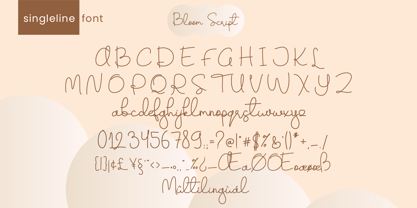 singleline font
Bloom Script
A B C D E F G H I J K L
M N O P Q R S T U V W X Y Z
abcdefghijklmnopqrstuvwxyz
0123456789
Multilingual